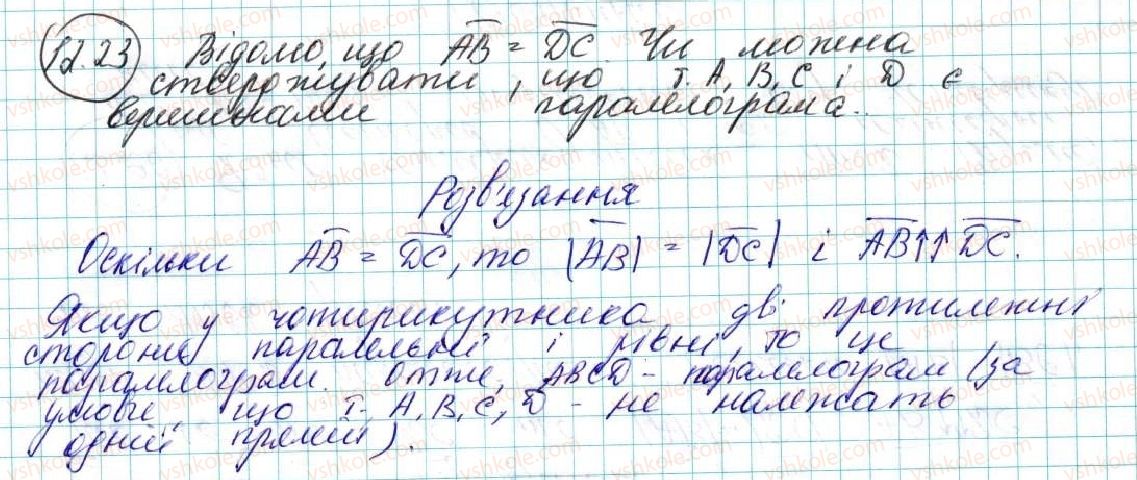 12.23 Відомо, що AB = DC. Чи можна
стверджувати, що т. A, B, C і D є
вершинами паралелограма.
Розв'язання
Оскільки AB = DC, то |AB| = |DC| і AB↑↑DC.
Якщо у чотирикутника дві протилежні
сторони паралельні і рівні, то це
паралелограм. Отже, ABCD - паралелограм (за
умови, що т. A, B, C, D - не належать
одній прямій).